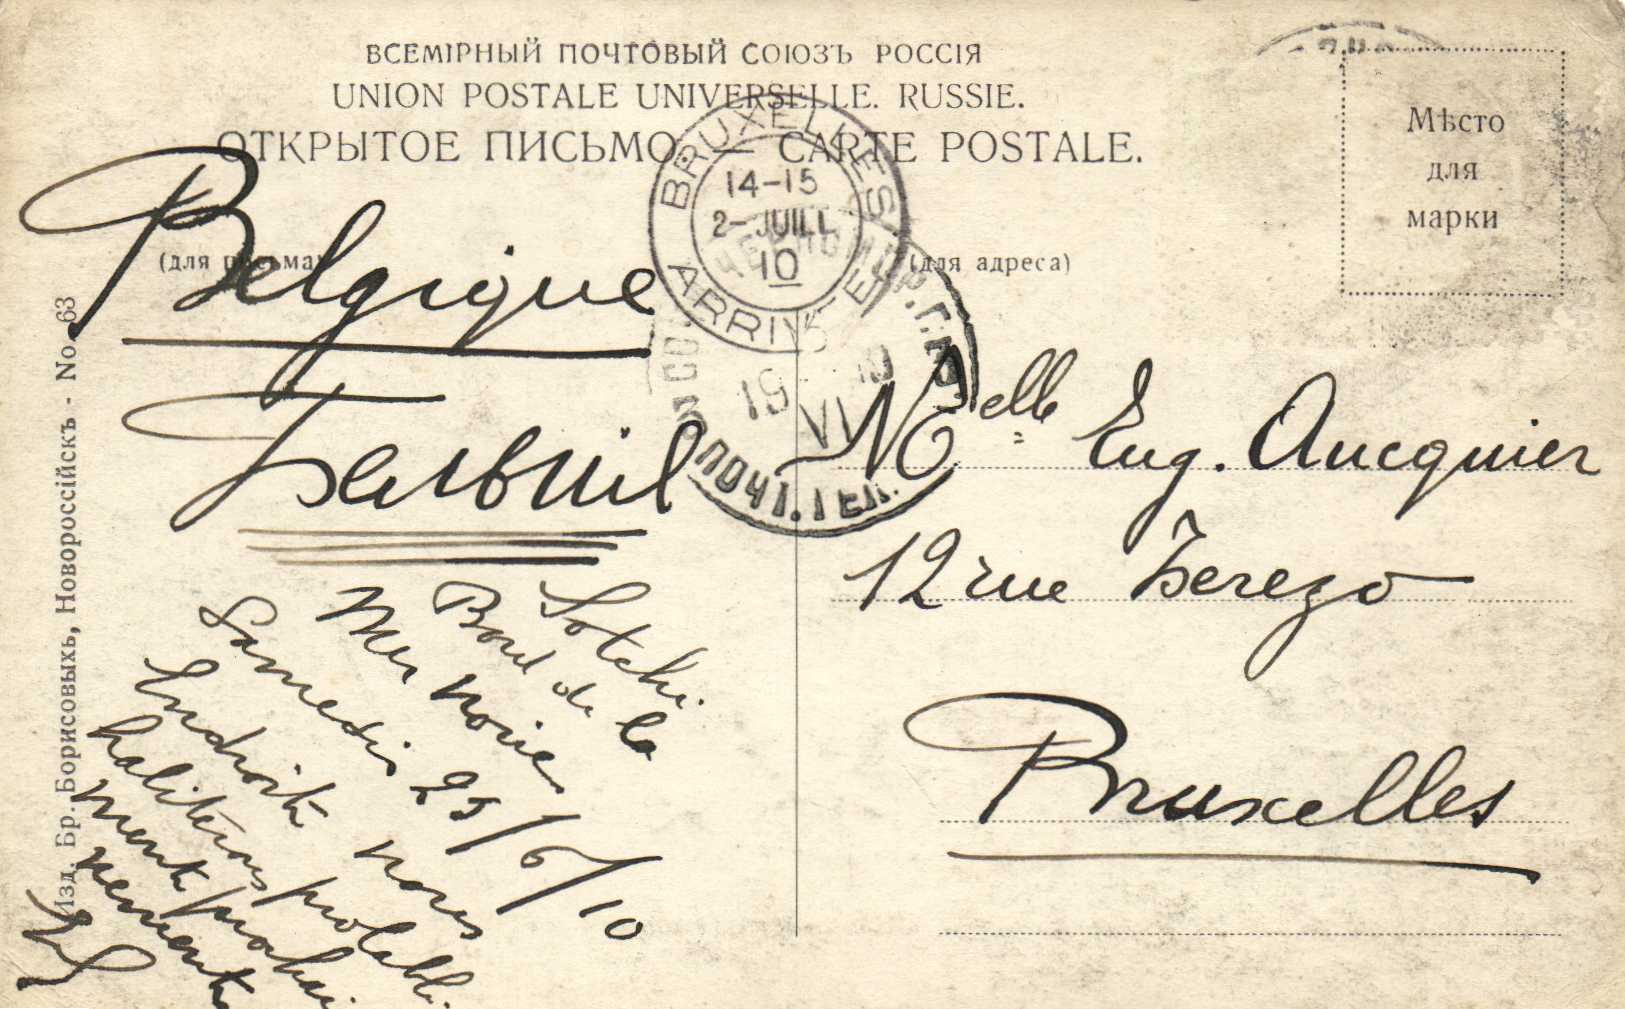 ВСЕМІРНЫЙ ПОЧТОВЫЙ СОЮЗЪ РОССІЯ
UNION POSTALE UNIVERSELLE. RUSSIE.
ОТКРЫТОЕ ПИСЬМО — CARTE POSTALE.
Мѣсто
для
марки
BRUXELLES
14-15
2- JUILL
10
ARRIVEE
(для письма)
(для адреса)
ПОЧТ. ТЕЛ.
Belgique
Melle Eug. Aucquier
12 rue Terezo
Bruxelles
Sotchi.
Bord de la
Mer noire
Samedi 25/6/10
Endroit nous
habiterons probable
ment prochai
nement
Изд. Бр. Борисовыхъ, Новороссійскъ - No 63